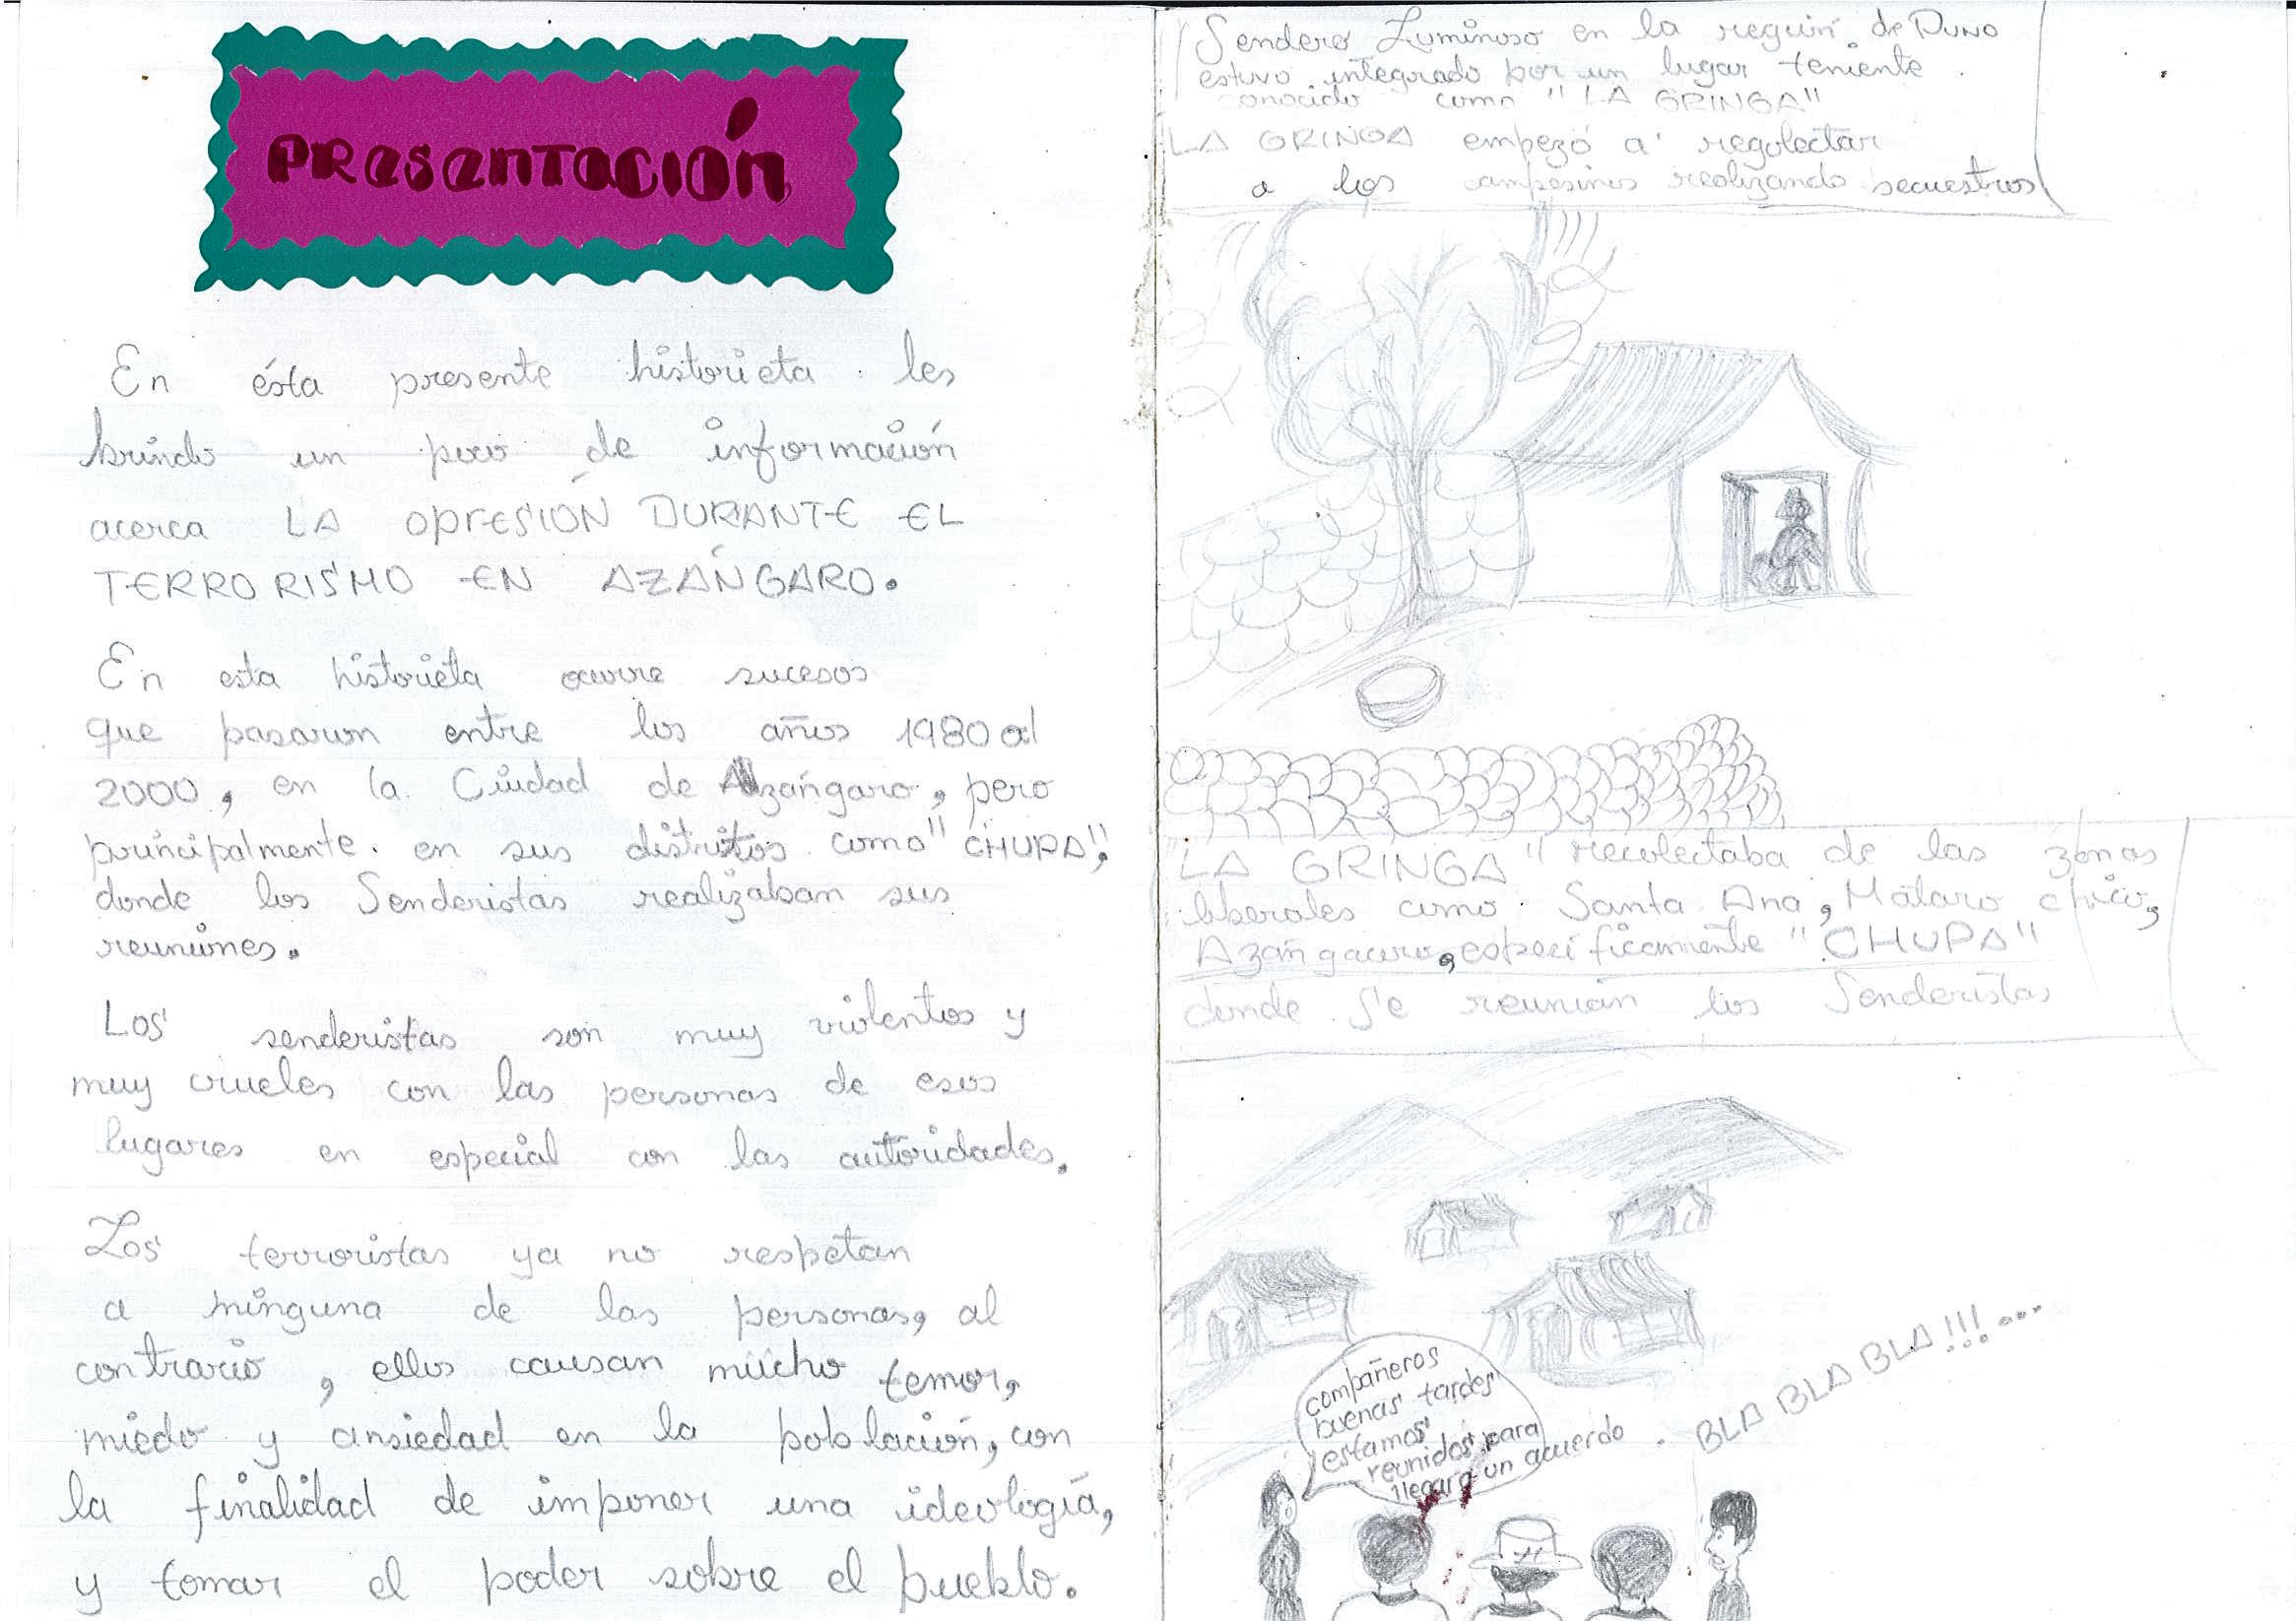 PRESENTACIÓN
En ésta presente historieta les
brindo un poco de información
acerca LA OPRESIÓN DURANTE EL
TERRORISMO EN AZÁNGARO.
En esta historieta ocurre sucesos
que pasaron entre los años 1980 al
2000, en la Ciudad de Azángaro, pero
principalmente. en sus distritos como "CHUPA",
donde los Senderistas realizaban sus
reuniones.
Los senderistas son muy violentos y
muy crueles con las personas de esos
lugares en especial con las autoridades.
Los terroristas ya no respetan
a ninguna de las personas, al
contrario, ellos causan mucho temor,
miedo y ansiedad en la población, con
la finalidad de imponer una ideología,
y tomar el poder sobre el pueblo.
Sendero Luminoso en la región de PUNO
estuvo integrado por un lugar teniente
conocido como "LA GRINGA"
LA GRINGA empezó a regolectar
a los campesinos realizando secuestros
LA GRINGA" recolectaba de las zonas
liberales como Santa Ana, Mataro chico,
Azángaro, especificamente "CHUPA"
donde se reunían los Senderistas
compañeros
buenas tardes
estamos
reunidos para
llegar a un acuerdo. BLA BLA BLA!!!....